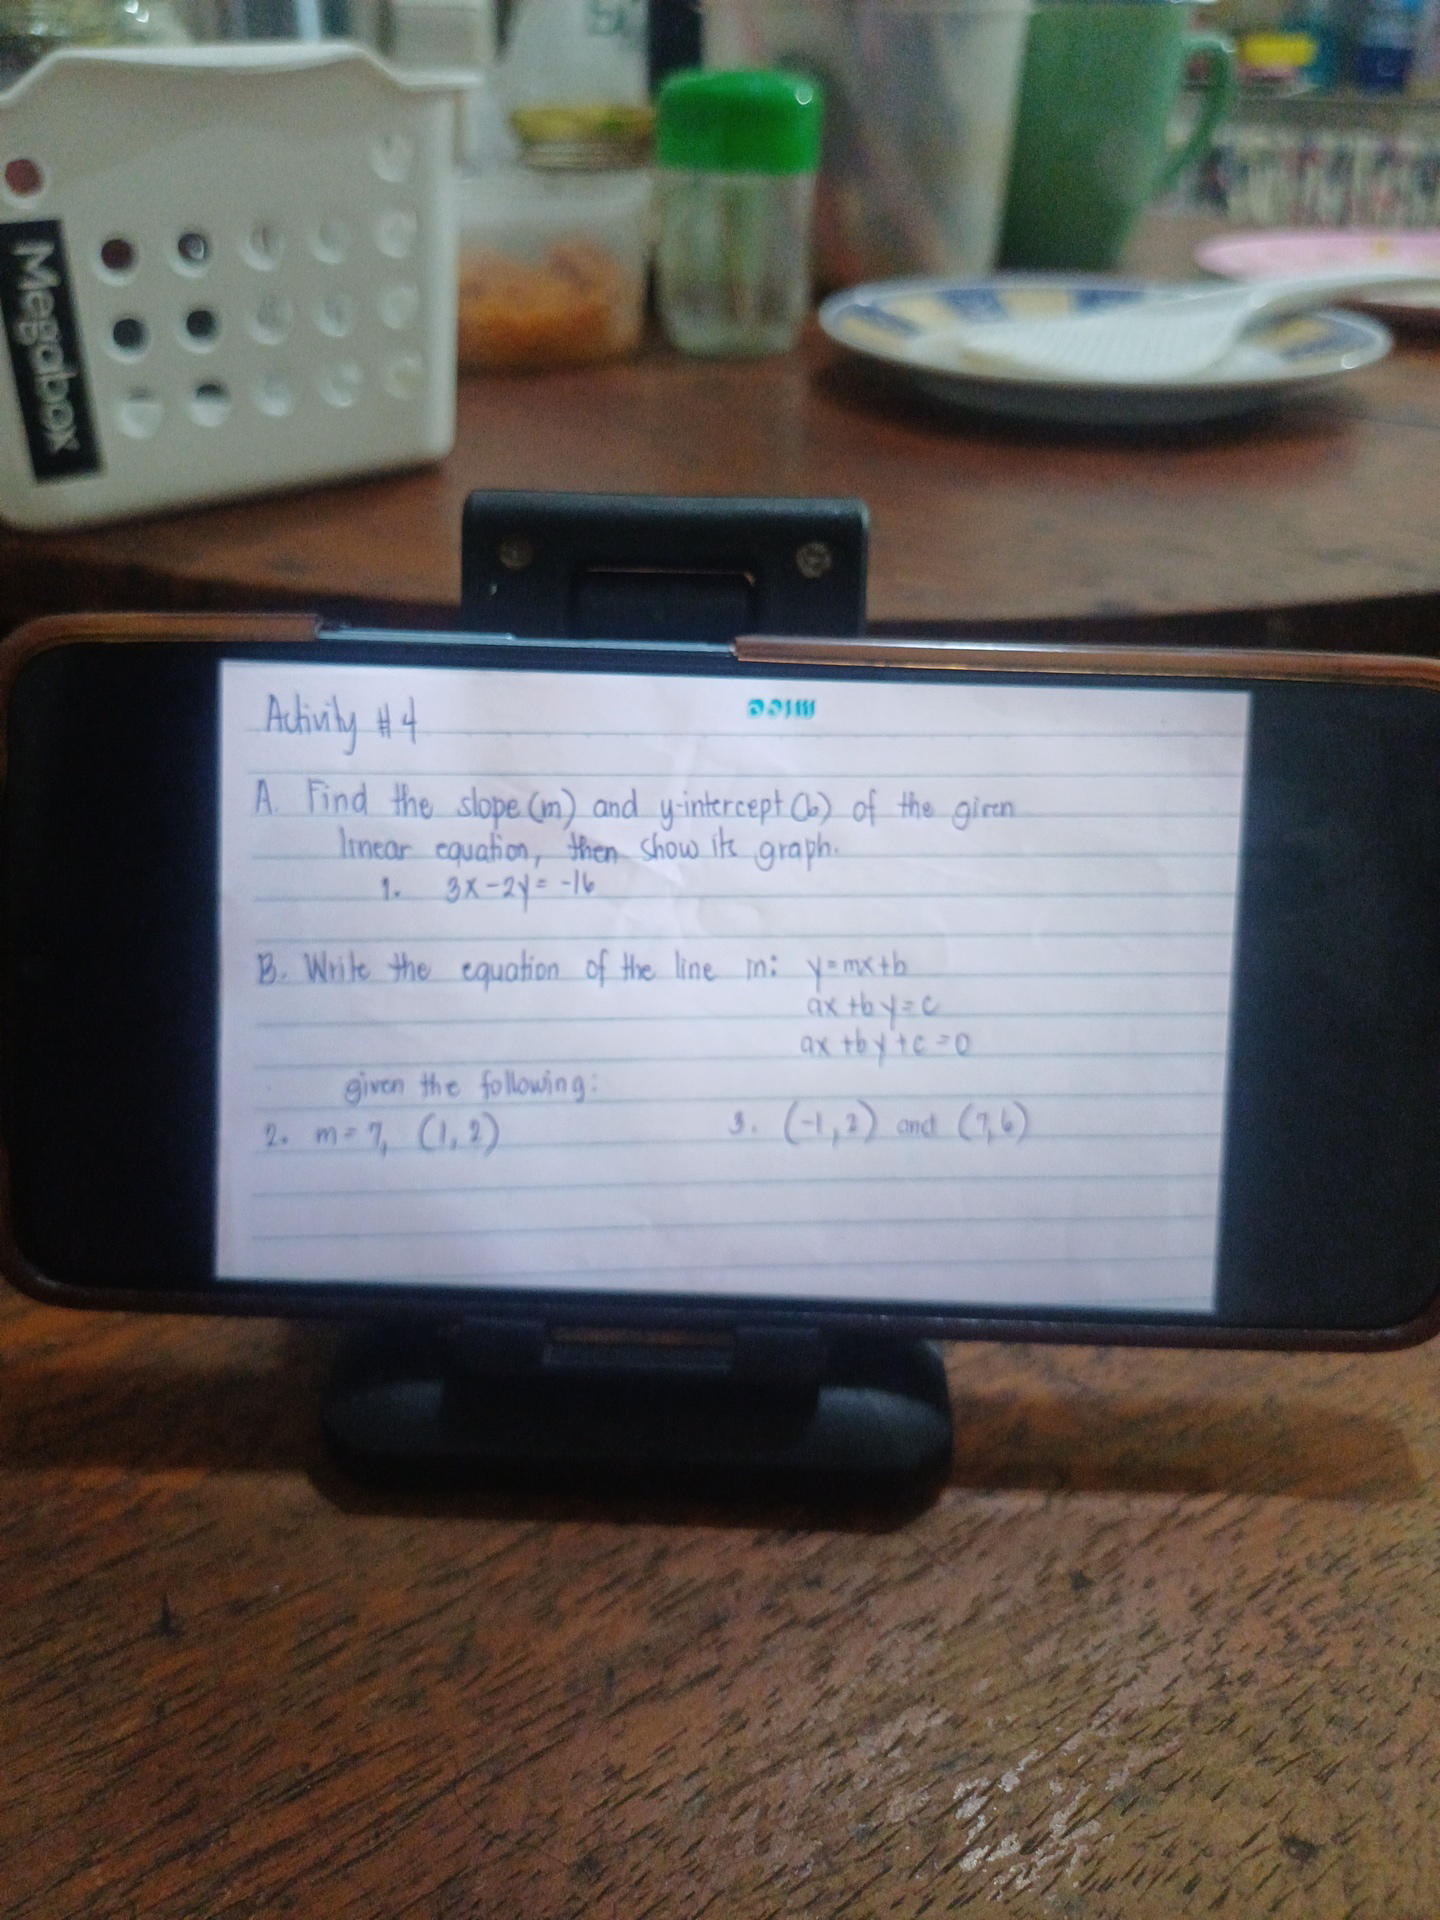 Megabox
Activity #4
A. Find the slope (m) and y-intercept (b) of the given
linear equation, then show its graph.
1. 3x-2y= -16
B. Write the equation of the line in: y=mx+b
ax+by=c
ax+by+c=0
given the following:
2. m=7, (1,2) 3. (-1,2) and (7,6)